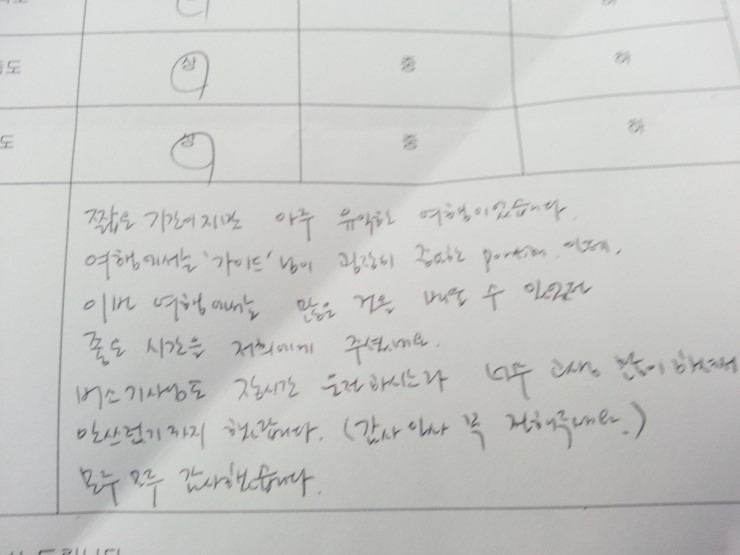 도 상 중 하
도 상 중 하
짧은 기간이지만 아주 유익한 여행이었습니다.
여행에서는 '가이드'님이 굉장히 중요한 portion 인데,
이번 여행에서는 많은 것을 배울 수 있었던
좋은 시간을 저희에게 주셨네요.
버스기사님도 장시간 운전하시느라 너무 고생 많이 하셔서
안쓰럽기까지 했답니다. (감사인사 꼭 전해주세요.)
모두 모두 감사했습니다.
드립니다